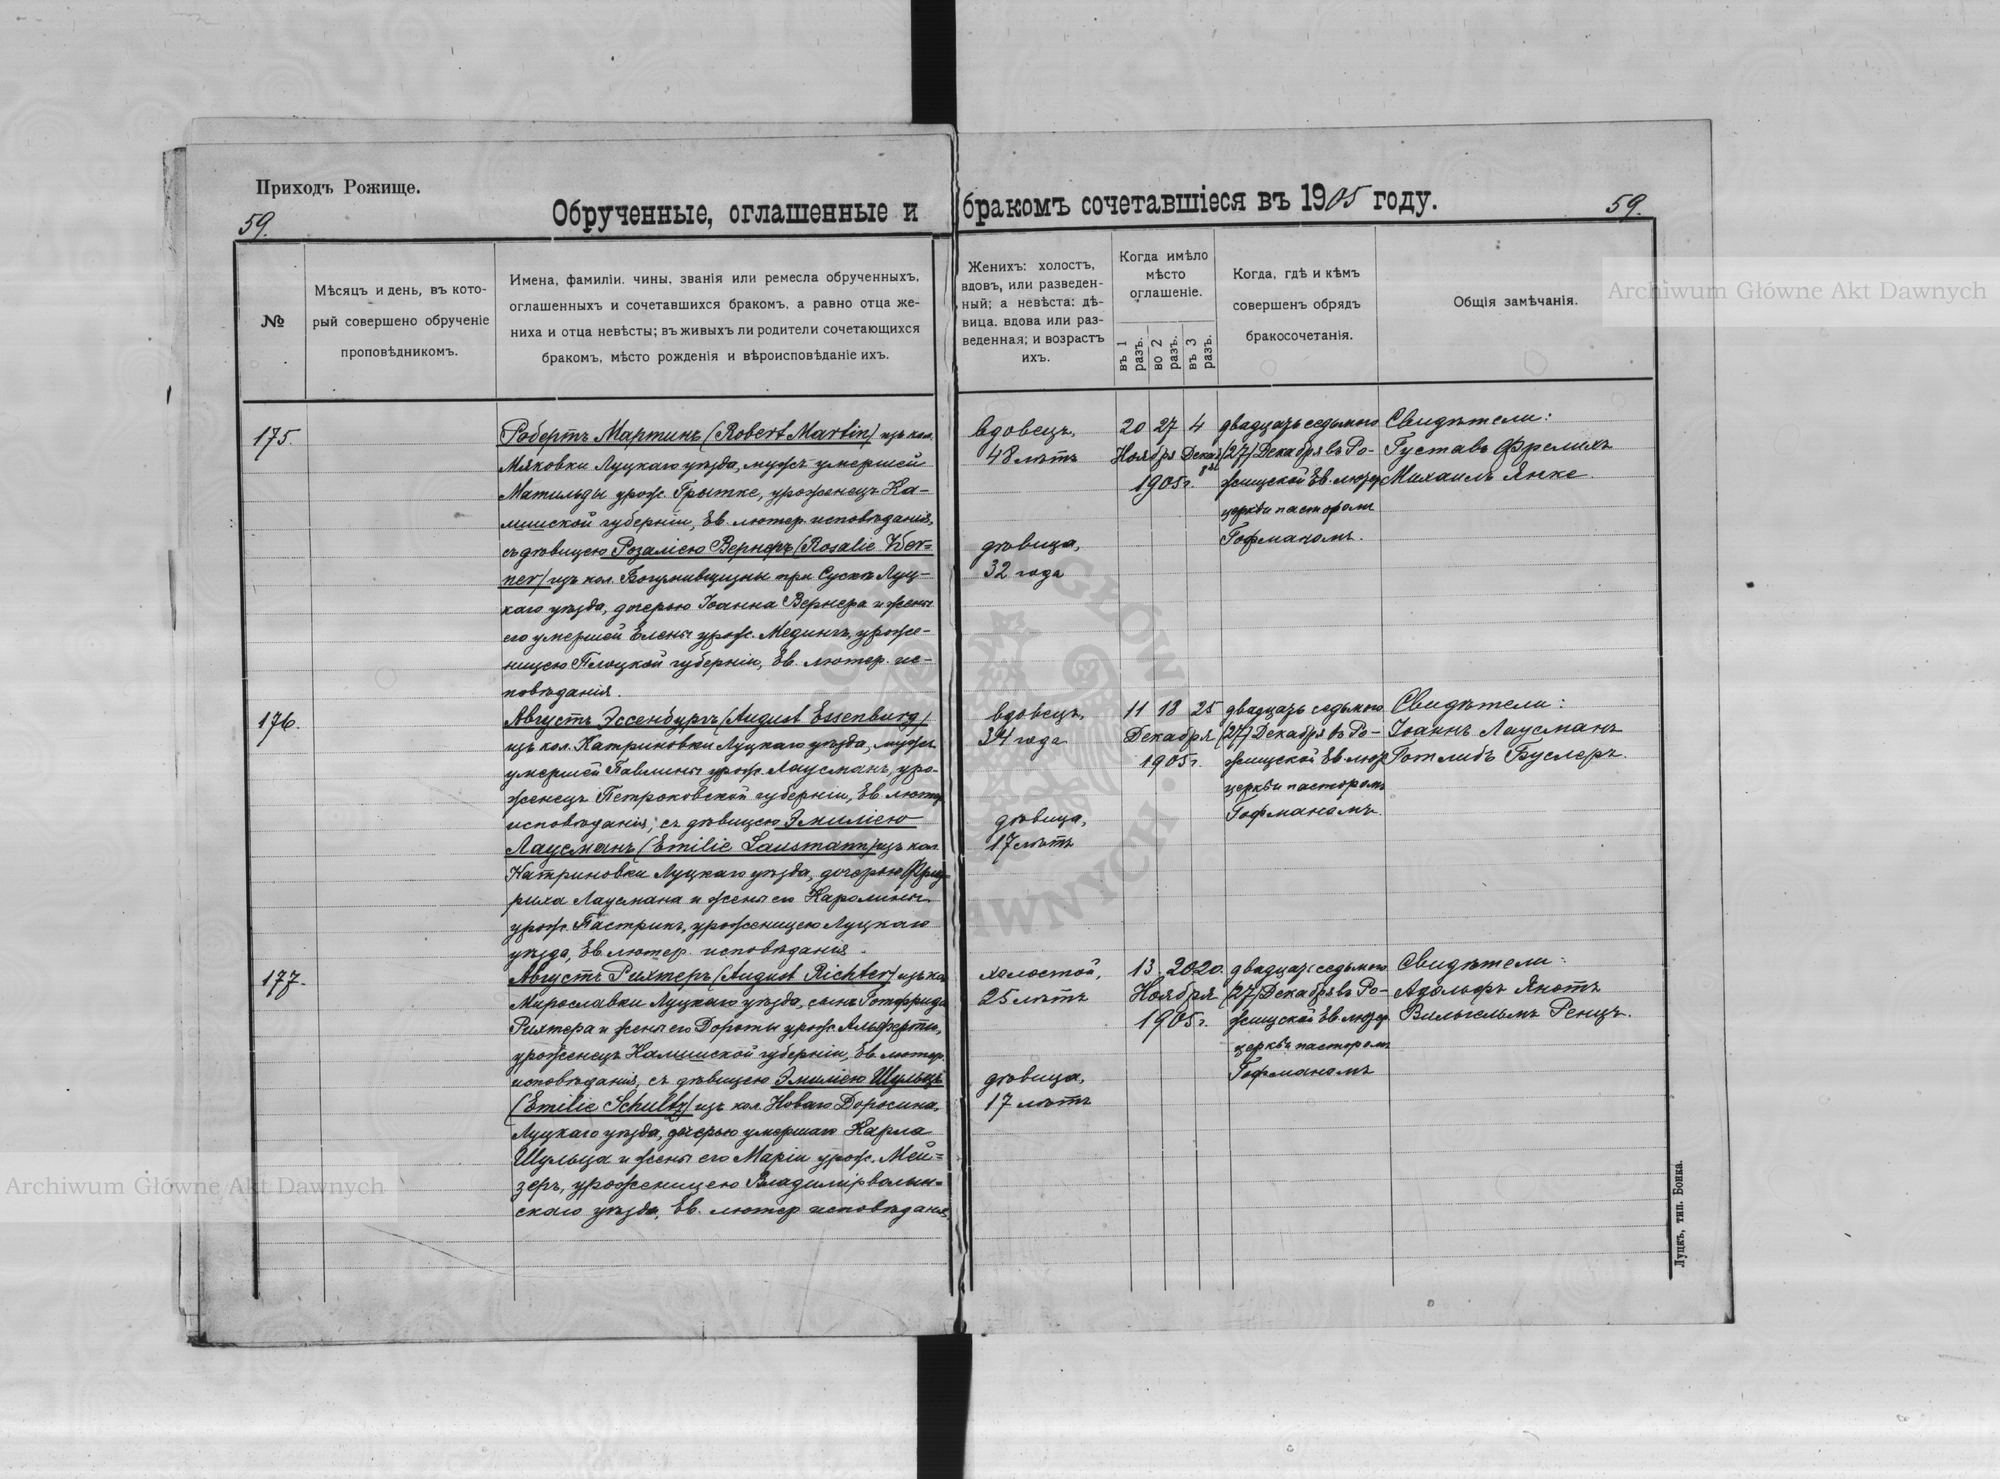 Приходъ Рожище.
59.
Обрученные, оглашенные и бракомъ сочетавшіеся въ 1905 году.
59.
№
Мѣсяцъ и день, въ кото-
рый совершено обрученіе
проповѣдникомъ.
Имена, фамиліи, чины, званія или ремесла обрученныхъ,
оглашенныхъ и сочетавшихся бракомъ, а равно отца же-
ниха и отца невѣсты; въ живыхъ ли родители сочетающихся
бракомъ, мѣсто рожденія и вѣроисповѣданіе ихъ.
Женихъ: холостъ,
вдовъ, или разведен-
ный; а невѣста: дѣ-
вица, вдова или раз-
веденная; и возрастъ
ихъ.
Когда имѣло
мѣсто
оглашеніе.
въ 1 разъ.
во 2 разъ.
въ 3 разъ.
Когда, гдѣ и кѣмъ
совершенъ обрядъ
бракосочетанія.
Общія замѣчанія.
175.
Робертъ Мартинъ (Robert Martin) изъ кол.
Мяковки Луцкаго уѣзда, мужъ умершей
Матильды урож. Грытке, уроженецъ Ка-
лишской губерніи, Ев. лютер. исповѣданія,
съ дѣвицею Розаліею Вернеръ (Rosalie Wer-
ner) изъ кол. при Сускъ Луц-
каго уѣзда, дочерью Іоанна Вернера и жены
его умершей Елены урож. Медингъ, уроже-
ницею Плоцкой губерніи, Ев. лютер. ис-
повѣданія.
вдовецъ,
48 лѣтъ
дѣвица,
32 года
20 27 4
Ноября Декабря
1905 г.
двадцать седьмого
(27) Декабря въ Ро-
жищской Ев. лютер
церкви пасторомъ
Гофманомъ.
Свидѣтели:
Густавъ Фрелихъ
Михаилъ Янке.
176.
Августъ Эссенбургъ (August Essenburg)
изъ кол. Катриновки Луцкаго уѣзда, мужъ
умершей Павлины урож. Лаусманъ, уро-
женецъ Петроковской губерніи, Ев. лютер
исповѣданія, съ дѣвицею Эмиліею
Лаусманъ (Emilie Lausmann) изъ кол.
Катриновки Луцкаго уѣзда, дочерью Фрид-
риха Лаусмана и жены его Каролины
урож. Пастрикъ, уроженицею Луцкаго
уѣзда, Ев. лютер. исповѣданія.
вдовецъ,
34 года
дѣвица,
17 лѣтъ
11 18 25
Декабря
1905 г.
двадцать седьмого
(27) Декабря въ Ро-
жищской Ев. лютер
церкви пасторомъ
Гофманомъ.
Свидѣтели:
Іоаннъ Лаусманъ
Готлибъ Буслеръ.
177.
Августъ Рихтеръ (August Richter) изъ кол.
Мирославки Луцкаго уѣзда, сынъ Готфрида
Рихтера и жены его Дороты урож.
уроженецъ Калишской губерніи, Ев. лютер.
исповѣданія, съ дѣвицею Эмиліею Шульцъ
(Emilie Schultz) изъ кол. Новаго Доросина,
Луцкаго уѣзда, дочерью умершаго Карла
Шульца и жены его Маріи урож. Мей-
зеръ, уроженицею Владимірволын-
скаго уѣзда, Ев. лютер исповѣданія,
холостой,
25 лѣтъ
дѣвица,
17 лѣтъ
13. 20 20.
Ноября
1905 г.
двадцать седьмого
(27) Декабря въ Ро-
жищской Ев. лютер.
церкви пасторомъ
Гофманомъ
Свидѣтели:
Адольфъ Янотъ
Вильгельмъ Ренцъ.
Луцкъ, тип. Бонка.
Archiwum Główne Akt Dawnych
Archiwum Główne Akt Dawnych